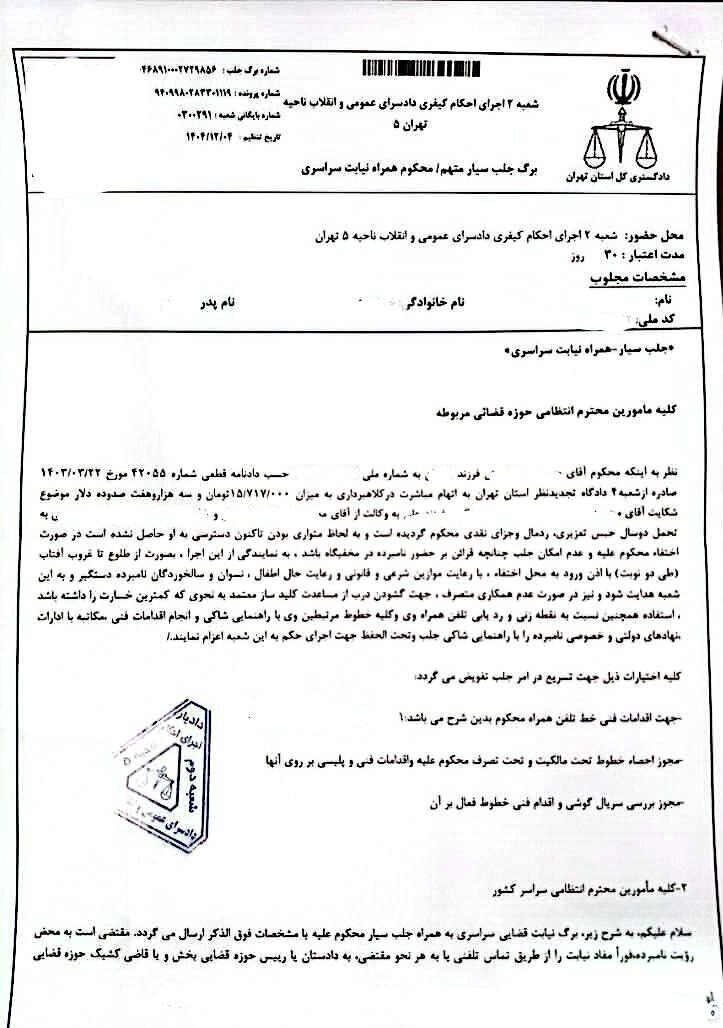 شماره برگ جلب : ۴۶۸۹۱۰۰۰۲۷۲۹۸۵۶
شماره پرونده : ۹۴۰۹۹۸۰۲۸۳۳۰۱۱۱۹
شماره بایگانی شعبه : ۰۳۰۰۲۹۱
تاریخ تنظیم : ۱۴۰۴/۱۲/۰۴
شعبه ۲ اجرای احکام کیفری دادسرای عمومی و انقلاب ناحیه
۵ تهران
برگ جلب سیار متهم/ محکوم همراه نیابت سراسری
دادگستری کل استان تهران
محل حضور: شعبه ۲ اجرای احکام کیفری دادسرای عمومی و انقلاب ناحیه ۵ تهران
مدت اعتبار : ۳۰ روز
مشخصات مجلوب
نام: نام خانوادگی: نام پدر
کد ملی:
*جلب سیار-همراه نیابت سراسری*
کلیه مامورین محترم انتظامی حوزه قضائی مربوطه
نظر به اینکه محکوم آقای فرزند به شماره ملی حسب دادنامه قطعی شماره ۴۲۰۵۵ مورخ ۱۴۰۳/۰۳/۲۲
صادره ازشعبه۴ دادگاه تجدیدنظر استان تهران به اتهام مباشرت درکلاهبرداری به میزان ۱۵/۷۱۷/۰۰۰تومان و سه هزاروهفت صدوده دلار موضوع
شکایت آقای به وکالت از آقای و به
تحمل دوسال حبس تعزیری، ردمال وجزای نقدی محکوم گردیده است و به لحاظ متواری بودن تاکنون دسترسی به او حاصل نشده است در صورت
اختفاء محکوم علیه و عدم امکان جلب چنانچه قرائن بر حضور نامبرده در مخفیگاه باشد ، به نمایندگی از این اجرا ، بصورت از طلوع تا غروب آفتاب
(طی دو نوبت) با اذن ورود به محل اختفاء ، با رعایت موازین شرعی و قانونی و رعایت حال اطفال ، نسوان و سالخوردگان نامبرده دستگیر و به این
شعبه هدایت شود و نیز در صورت عدم همکاری متصرف ، جهت گشودن درب از مساعدت کلید ساز معتمد به نحوی که کمترین خسارت را داشته باشد
، استفاده همچنین نسبت به نقطه زنی و رد یابی تلفن همراه وی وکلیه خطوط مرتبطین وی با راهنمایی شاکی و انجام اقدامات فنی ،مکاتبه با ادارات
،نهادهای دولتی و خصوصی نامبرده را با راهنمایی شاکی جلب وتحت الحفظ جهت اجرای حکم به این شعبه اعزام نمایند./
کلیه اختیارات ذیل جهت تسریع در امر جلب تفویض می گردد:
-جهت اقدامات فنی خط تلفن همراه محکوم بدین شرح می باشد:۱
-مجوز احصاء خطوط تحت مالکیت و تحت تصرف محکوم علیه واقدامات فنی و پلیسی بر روی آنها
-مجوز بررسی سریال گوشی و اقدام فنی خطوط فعال بر آن
دادیار
شعبه دوم
دادسرای عمومی و
۲-کلیه مأمورین محترم انتظامی سراسر کشور
سلام علیکم، به شرح زیر، برگ نیابت قضایی سراسری به همراه جلب سیار محکوم علیه با مشخصات فوق الذکر ارسال می گردد. مقتضی است به محض
رؤیت نامبرده،فوراً مفاد نیابت را از طریق تماس تلفنی یا به هر نحو مقتضی، به دادستان یا رییس حوزه قضایی بخش و یا قاضی کشیک حوزه قضایی